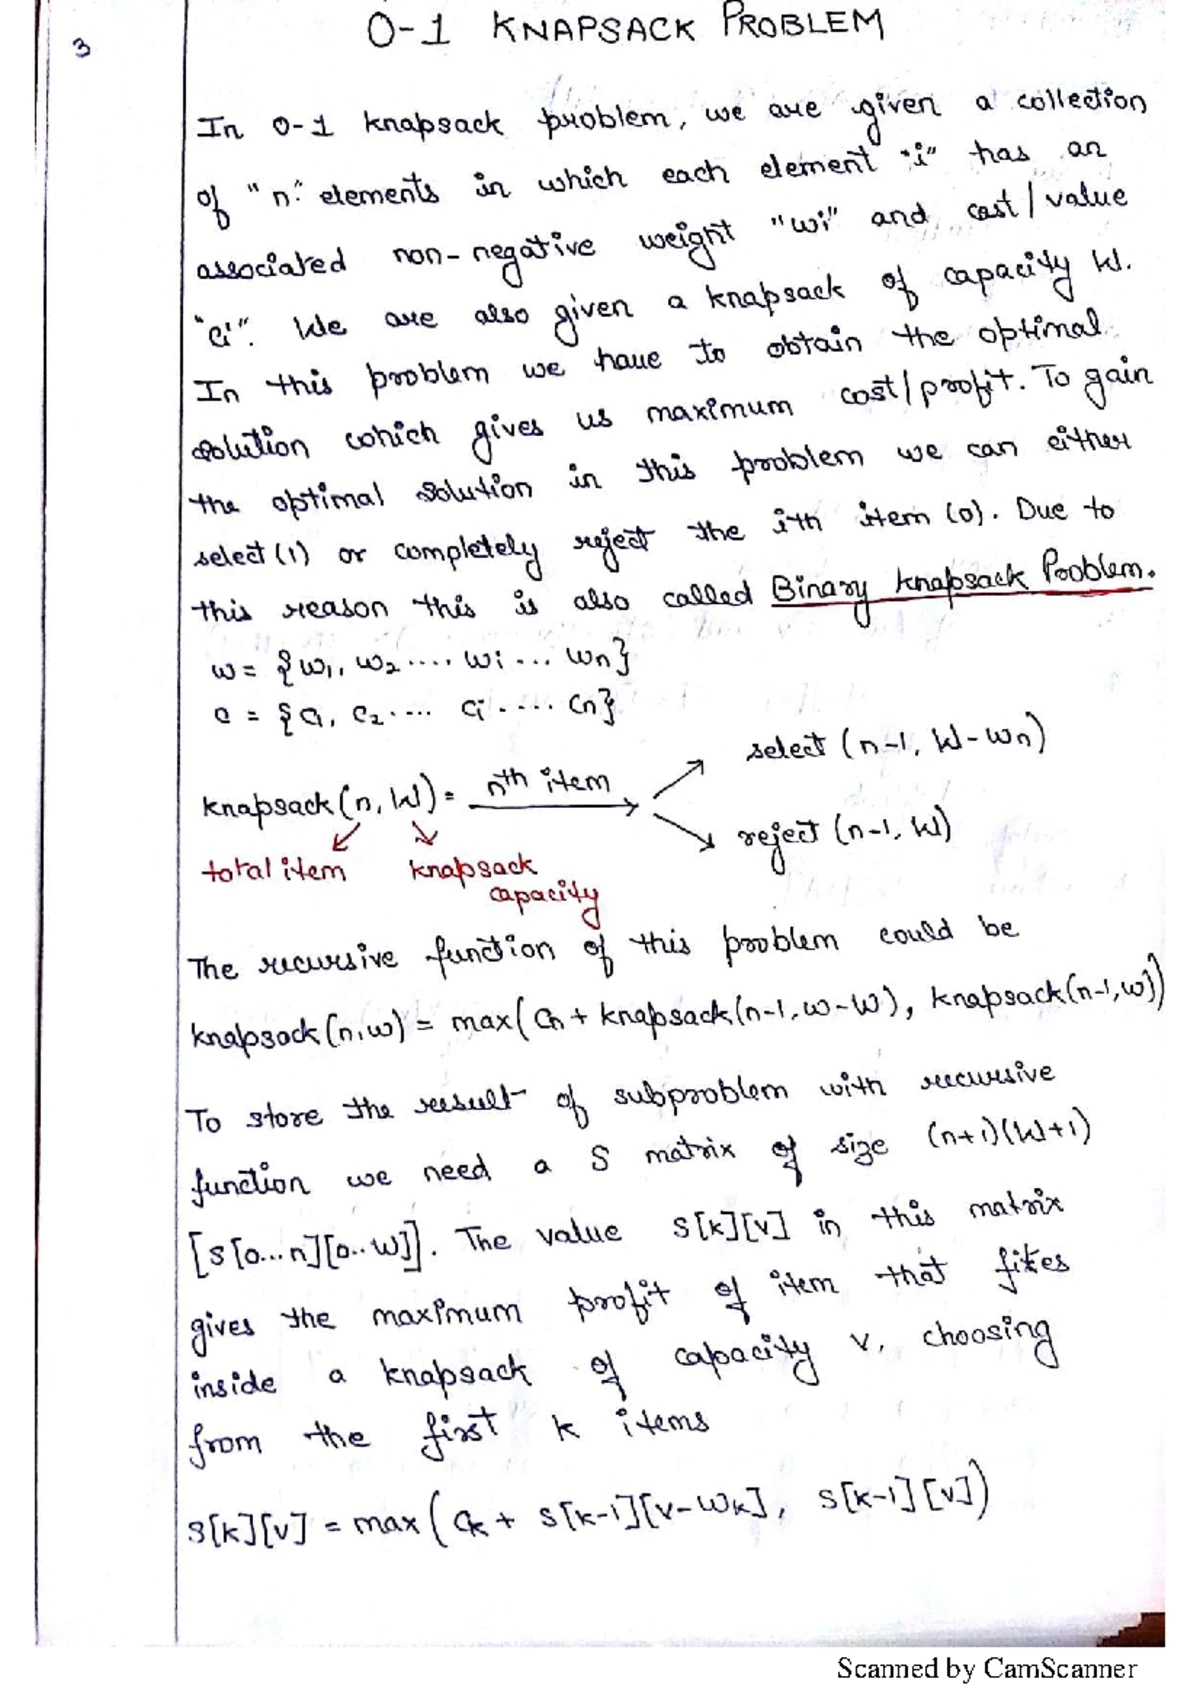 3
0-1 KNAPSACK PROBLEM
In 0-1 knapsack problem, we are given a collection
of "n" elements in which each element "i" has an
associated non-negative weight "wi" and cost/value
"ci". We are also given a knapsack of capacity W.
In this problem we have to obtain the optimal
solution which gives us maximum cost/profit. To gain
the optimal solution in this problem we can either
select (1) or completely reject the ith item (0). Due to
this reason this is also called Binary knapsack Problem.
w = {w1, w2 .... wi ... wn}
c = {c1, c2 .... ci .... cn}
select (n-1, W-wn)
knapsack(n, W) = nth item
reject (n-1, W)
total item knapsack
capacity
The recursive function of this problem could be
knapsack(n,w) = max(cn + knapsack(n-1, w-W), knapsack(n-1,w))
To store the result of subproblem with recursive
function we need a S matrix of size (n+1)(W+1)
[S[0...n][0..W]]. The value S[k][v] in this matrix
gives the maximum profit of item that fites
inside a knapsack of capacity v, choosing
from the first k items
S[k][v] = max(ck + S[k-1][v-wk], S[k-1][v])
Scanned by CamScanner